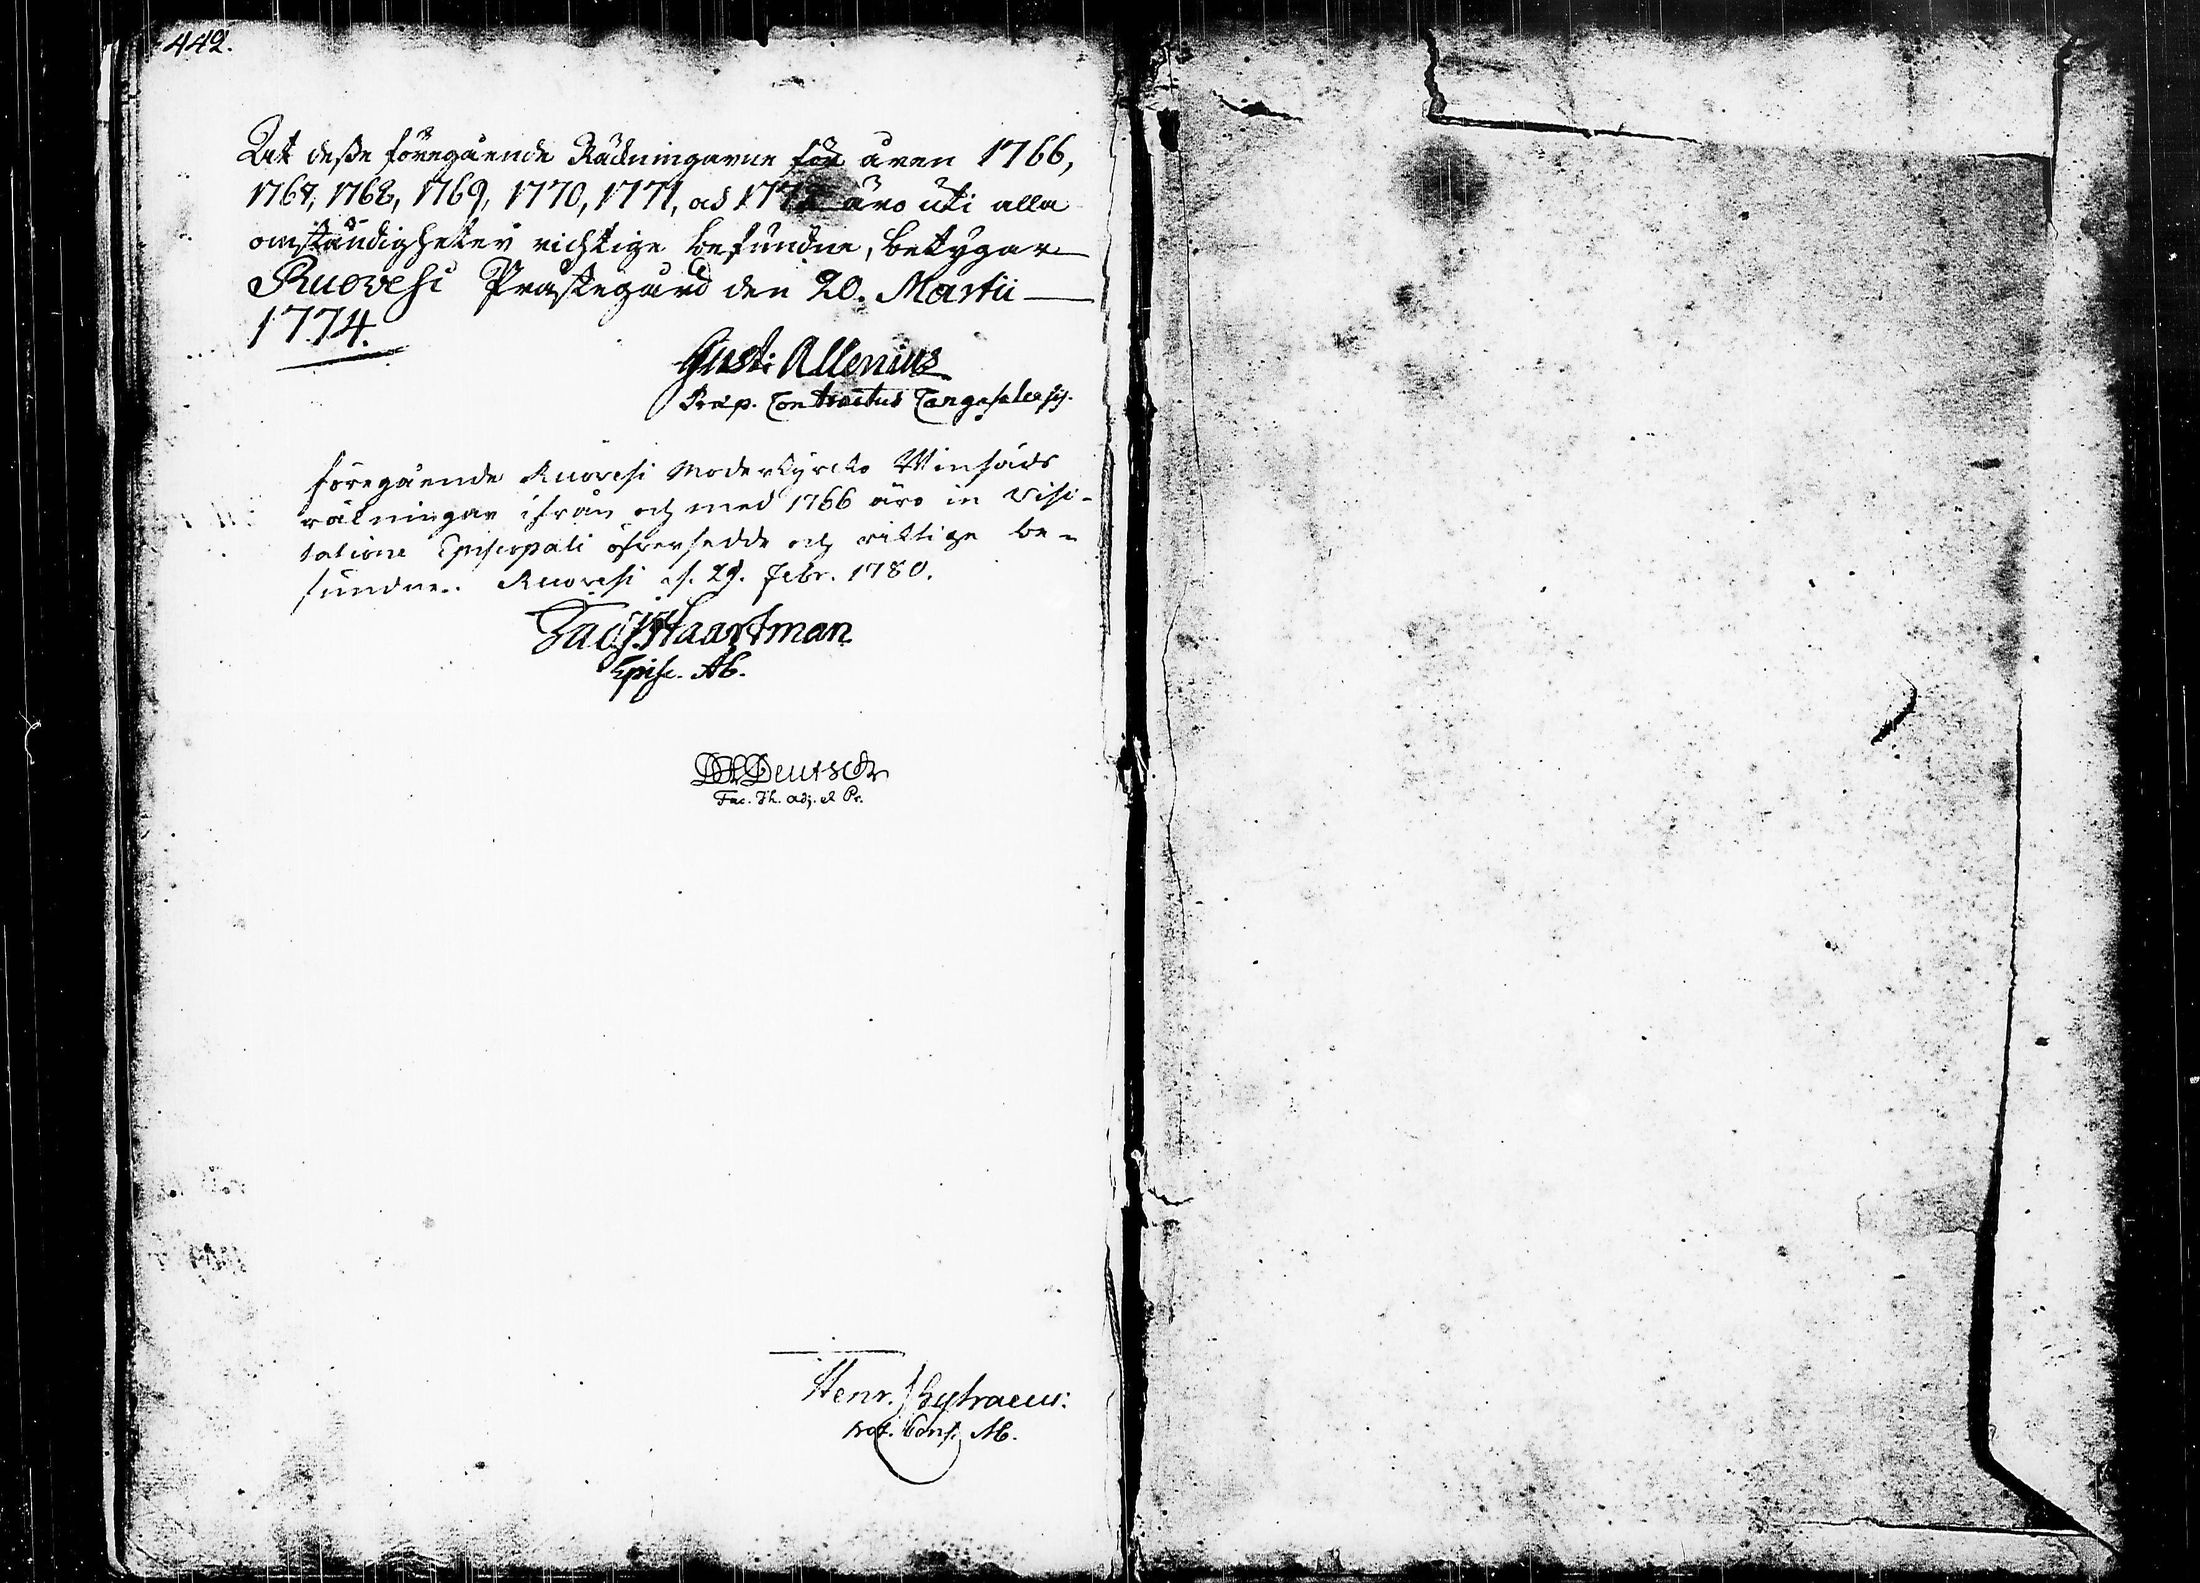 442.
At desse föregående Räckningarne för åren 1766,
1767, 1768, 1769, 1770, 1771, och 1772 äro uti alla
omständigheter richtige befundne, betygar
Ruovesi Prästegård den 20. Martii
1774.
Gust: Allenius
Præp. Contractus
föregående Ruovesi Moderkyrcko Winsäds
räkningar ifrån och med 1766 äro in Visi-
tatione Episcopali öfversedde och riktige be-
fundne. Ruovesi d. 29. Febr. 1780.
Jac: Haartman
Episc. Ab.
Deutsch
Fac. Th. Adj. et Pr.
Henr. Chytraeus:
Not. Cons. Ab.